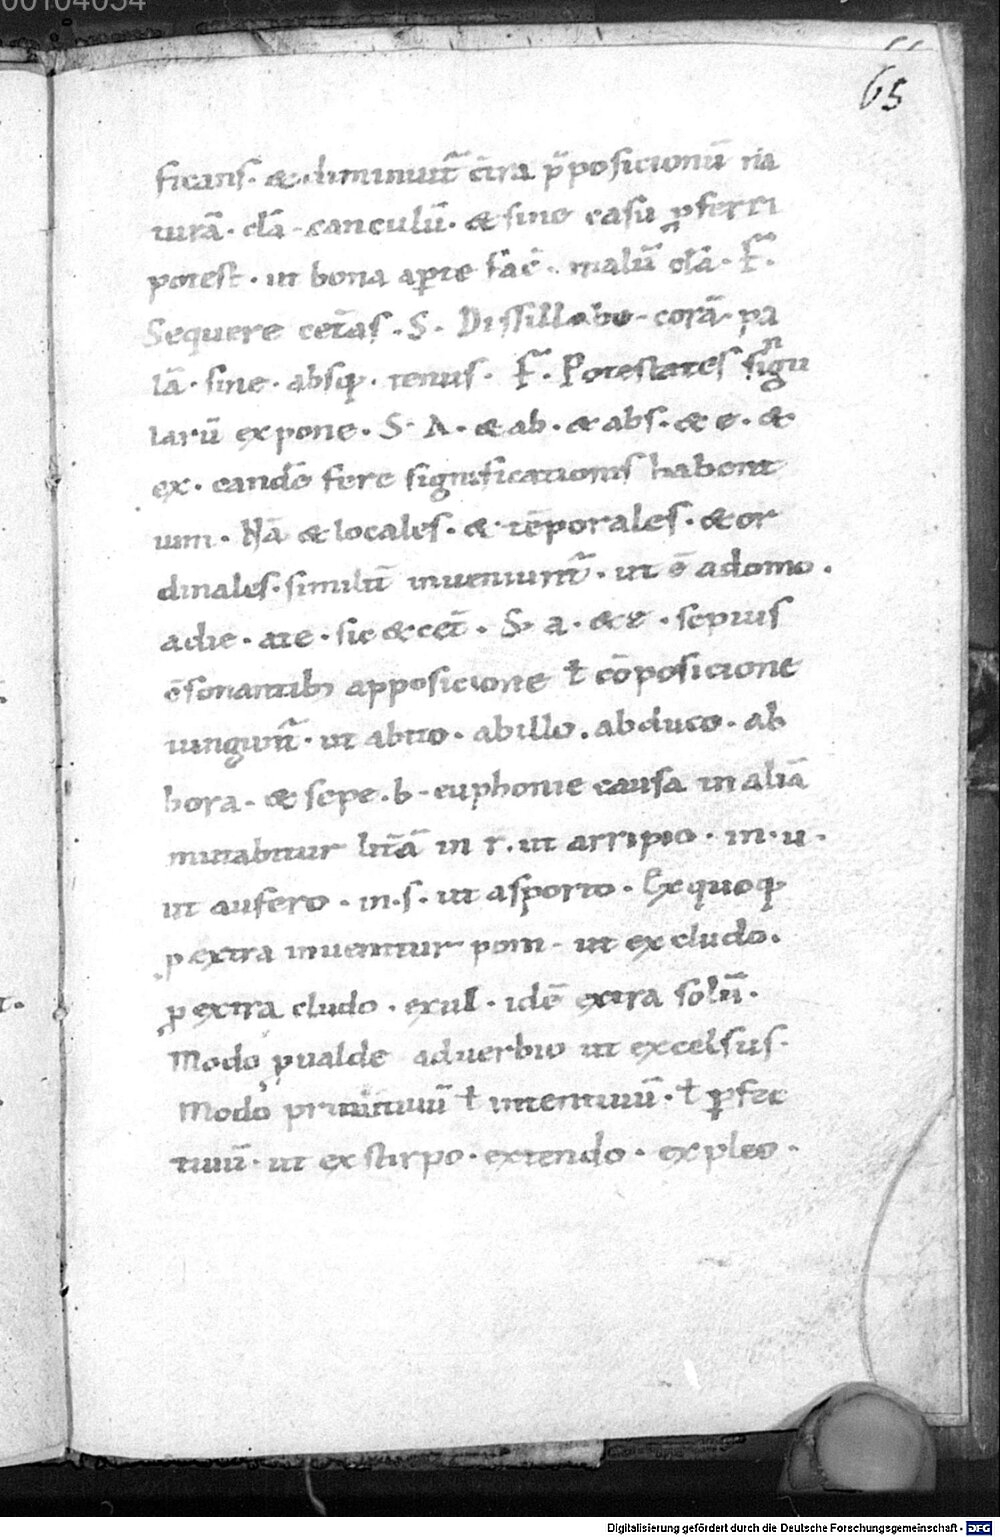 00104054
65
ficans. & diminuit̄ c̄tra p̄posicionū na
turā. clā. canculū. & sine casu ꝑferri
potest. ut bona aperte fac̄. malū clā. F̄.
Sequere cet̄as. S. Dissillabe. corā. pa
lā. sine. absq;. tenus. F̄. Potestates singu
larū expone. S. A. & ab. & abs. & e. &
ex. eandē fere significationis habent
uim. Nā & locales. & tēporales. & or
dinales. similit̄ inueniunt̄. ut ē adomo.
adie. ate. sic & cet̄. S. a. & e. sepius
c̄sonantib; apposicione ł cōposicione
iungunt̄. ut abito. abillo. abduco. ab
hora. & sepe. b. euphonie causa in aliā
mutabitur litt̄ā in r. ut arripio. in. u.
ut aufero. in. s. ut asporto. Ex quoq;
ꝑ extra inuenitur poni. ut excludo.
ꝑ extra cludo. exul. idē extra solū.
Modo ꝑ ualde aduerbio ut excelsus.
Modo primitiuū ł intentiuū. ł ꝑfec
tiuū. ut exstirpo. extendo. expleo.
Digitalisierung gefördert durch die Deutsche Forschungsgemeinschaft - DFG